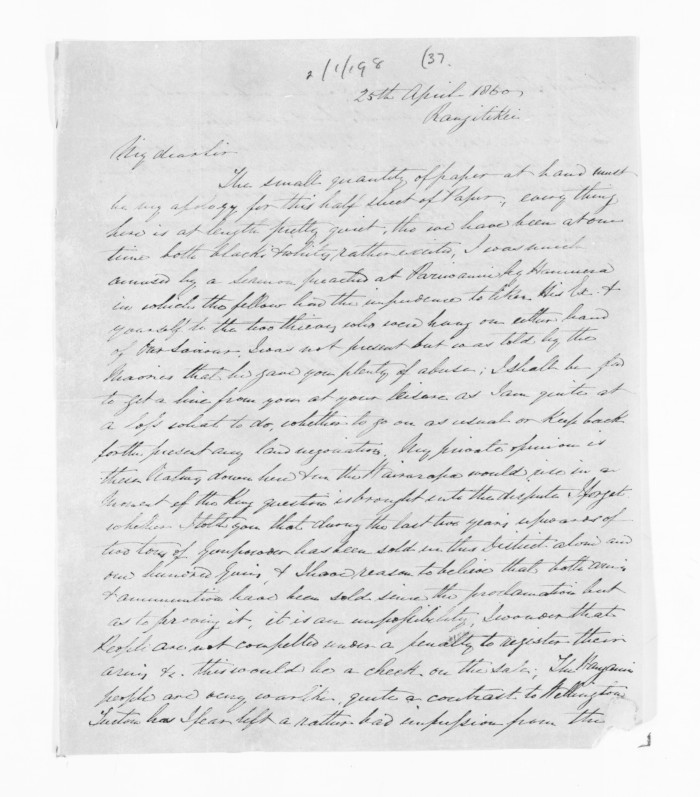 2/1/198 (37.
25th April 1860
Rangitikei
My dear Sir
The small quantity of paper at hand must
be my apology for this half sheet of Paper, every thing
here is at length pretty quiet, tho we have been at one
time both blacks & whites, rather excited, I was much
amused by a Sermon preached at by
in which the fellow had the impudence to liken His Ex. &
yourself to the two thieves who were hung on either hand
of Our Saviour. I was not present but was told by the
Maories that he gave you plenty of abuse; I shall be glad
to get a line from you at your leisure as I am quite at
a loss what to do, whether to go on as usual or keep back
for the present any land negociation. My private opinion is
these Natives down here & in the Wairarapa would rise in a
moment if the King question is brought into the dispute I forget
whether I told you that during the last two years upwards of
two tons of Gunpowder has been sold in this District alone and
one hundred Guns, & I have reason to believe that both arms
& ammunition have been sold since the proclamation but
as to proving it, it is an impossibility, I wonder that
People are not compelled under a penalty to register their
arms &c. this would be a check on the sale; The Wanganui
people are very warlike, quite a contrast to Wellington
Turton has I fear left a rather bad impression from the